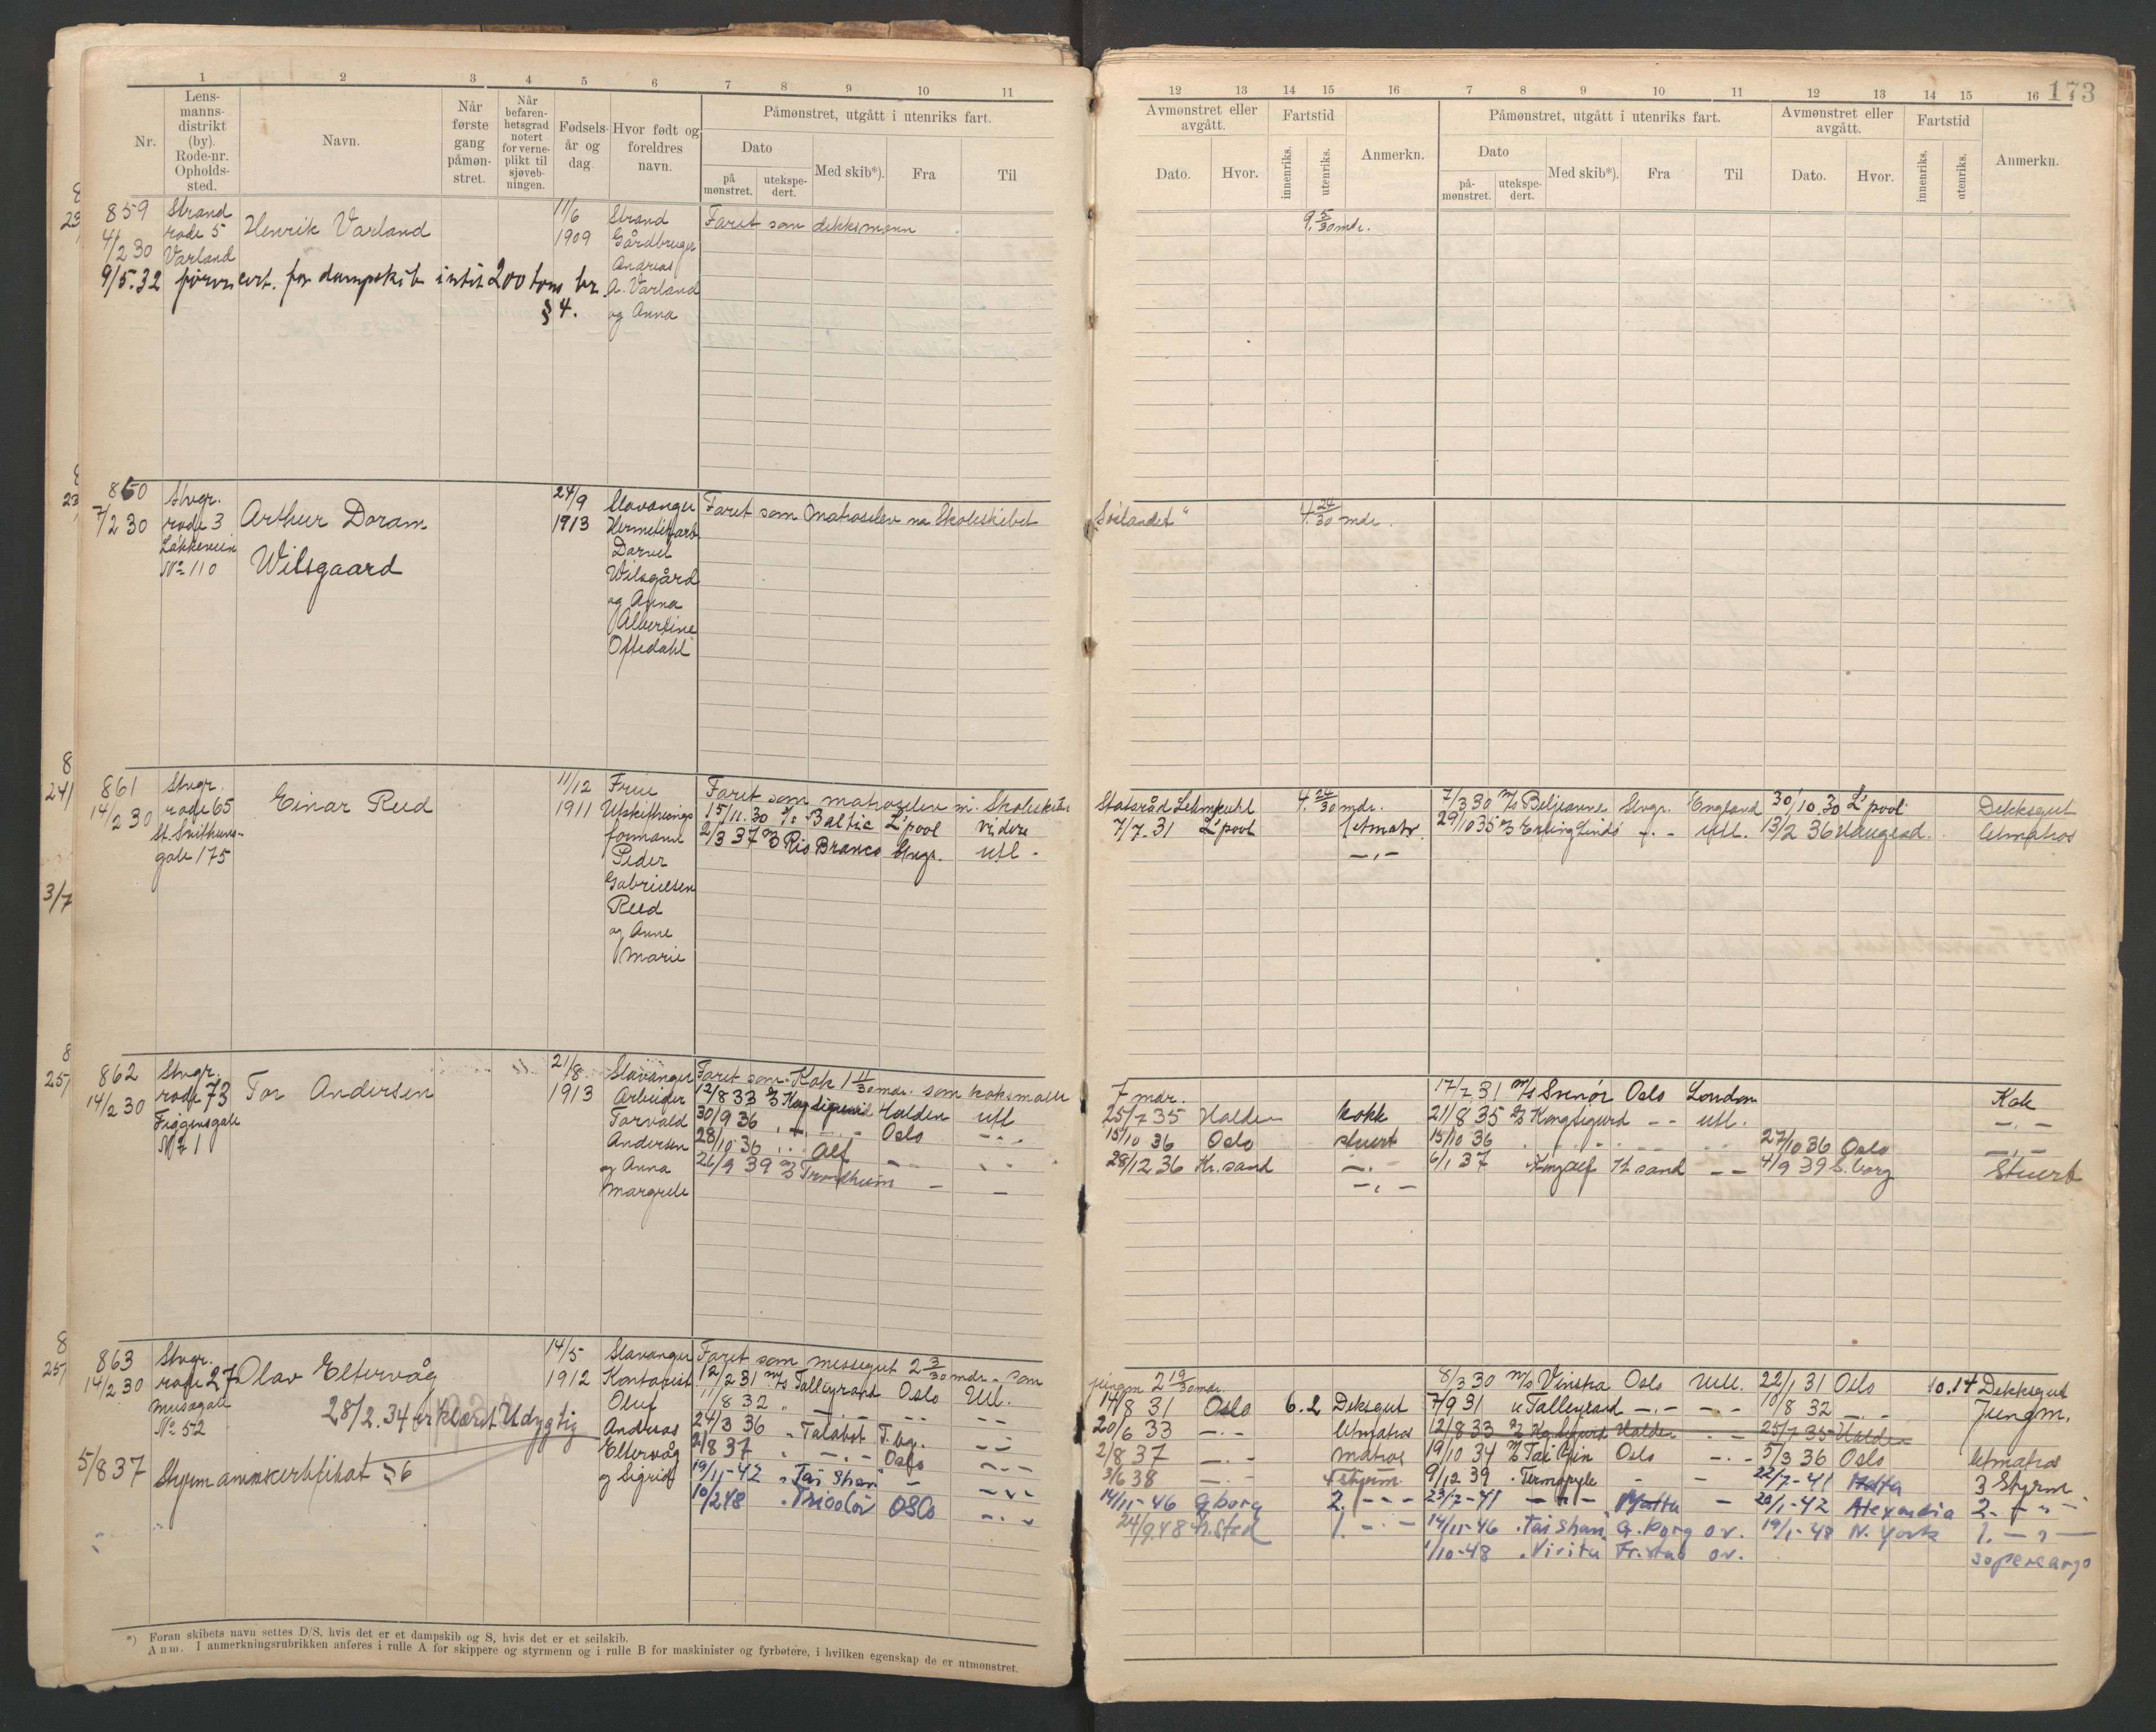 1 2 3 4 5 6 7 8 9 10 11
Nr.
Lens-
manns-
distrikt
(by)
Rode-nr.
Opholds-
sted.
Navn.
Når
første
gang
påmøn-
stret.
Når
befaren-
hetsgrad
notert
for verne-
plikt til
sjøveb-
ningen.
Fødsels-
år og
dag.
Hvor født og
foreldres
navn.
Påmønstret, utgått i utenriks fart.
Dato
på
mønstret.
utekspe-
dert.
Med skib*).
Fra
Til
859 Strand
4/2 30 rode 5
Varland
Henrik Varland
11/6
1909
Strand
Gårdbruger
Andreas
A. Varland
og Anna
Faret som dekksmann
9/5.32 førercert. for dampskib intil 200 tons br.
§ 4.
860 Stvgr.
7/2 30 rode 3
Løkkeveien
No 110
Arthur Doram
Wilsgaard
24/9
1913
Stavanger
Hermetikkarb
Darvel
Wilsgård
og Anna
Albertine
Oftedahl
Faret som matroselev m Skoleskibet
861 Stvgr.
14/2 30 rode 65
St. Svithuns-
gate 175
Einar Reed
11/12
1911
Frue
Utskiftnings
formann
Peder
Gabrielsen
Reed
og Anne
Marie
Faret som matroselev m. Skoleskibet
15/11.30 Baltic L'pool videre
2/3 37 Rio Branco Stvgr. utl -
3/7
862 Stvgr.
14/2 30 rode 73
Figgensgate
No 1
Tor Andersen
21/8
1913
Stavanger
Arbeider
Torvald
Andersen
og Anna
Margrete
Faret som Kok 1 11/30 mdr. som koksmatt
12/8 33 Kong Sigurd Halden utl
30/9 36 " - " - Oslo - " -
28/10 36 " Alf
26/9 39 Trondheim - -
863 Stvgr.
14/2 30 rode 27
Musegate
No 52
Olav Eltervåg
28/2.34 erklæret Udygtig
5/8 37 Styrmannscertifikat § 6
14/5
1912
Stavanger
Kontorist
Oluf
Andreas
Eltervåg
og Sigrid
Faret som messegut 2 3/30 mdr. som
12/2 31 m/s Talleyrand Oslo Utl.
11/8 32 " - " - - - - -
24/3 36 " Talabot T.bg. - -
2/8 37 " - " - Oslo - " -
19/11-42 " Tai Shan - - " -
10/2 48 " Tricolor Oslo - " -
*) Foran skibets navn settes D/S, hvis det er et dampskib og S, hvis det er et seilskib.
Anm. I anmerkningsrubrikken anføres i rulle A for skippere og styrmenn og i rulle B for maskinister og fyrbøtere, i hvilken egenskap de er utmønstret.
173
12 13 14 15 16 7 8 9 10 11 12 13 14 15 16
Avmønstret eller
avgått.
Dato.
Hvor.
Fartstid
innenriks.
utenriks.
Anmerkn.
Påmønstret, utgått i utenriks fart.
Dato
på-
mønstret.
utekspe-
dert.
Med skib*).
Fra
Til
Avmønstret eller
avgått.
Dato.
Hvor.
Fartstid
innenriks.
utenriks.
Anmerkn.
9. 5/30 mdr.
"Sørlandet" 4. 24/30 mdr.
Statsråd Lehmkuhl 4. 24/30 mdr. 7/3 30 m/s Beljeanne Stvgr. England 30/10 30 L'pool Dekksgut
7/7. 31 L'pool letmatr. 29/10 35 Erling Lindø - " - utl. 13/2 36 Haugesd. letmatros
- " -
7 mdr. 17/7 31 m/s Sunør Oslo London Kok
25/7 35 Halden kokk 21/8 35 Kong Sigurd - - utl. - " -
15/10 36 Oslo stuert 15/10 36 27/10 36 Oslo - " -
28/12 36 Kr.sand - " - 6/1 37 Kong Alf Kr sand - - 4/9 39 S.borg Stuert
- " -
jungm 2 19/30 mdr. 8/3 30 m/s Vinstra Oslo Utl. 22/1 31 Oslo 10.14 Dekksgut
14/8 31 Oslo 6.2 Deksgut 7/9 31 " Talleyrand - " - - " - 10/8 32 - " - Jungm.
20/6 33 - " - letmatros 12/8 33 Kg Sigurd Halden - " - 25/7 35 Halden
2/8 37 - " - matros 19/10 34 Tai Yin Oslo - " - 5/3 36 Oslo letmatros
3/6 38 - " - 4 styrm. 9/12 39 " Termopyle - - 22/7-41 Malta 3 Styrm
14/11-46 G.borg 2. - " - 23/7-41 - " - Malta - 20/1-42 Alexandria 2. - " -
24/9.48 Fr.stad 1. - " - 14/11-46 "Tai Shan" G.borg ov. 19/1-48 N. York 1. - " -
1/10-48 " Virita Fr.stad ov. supercargo